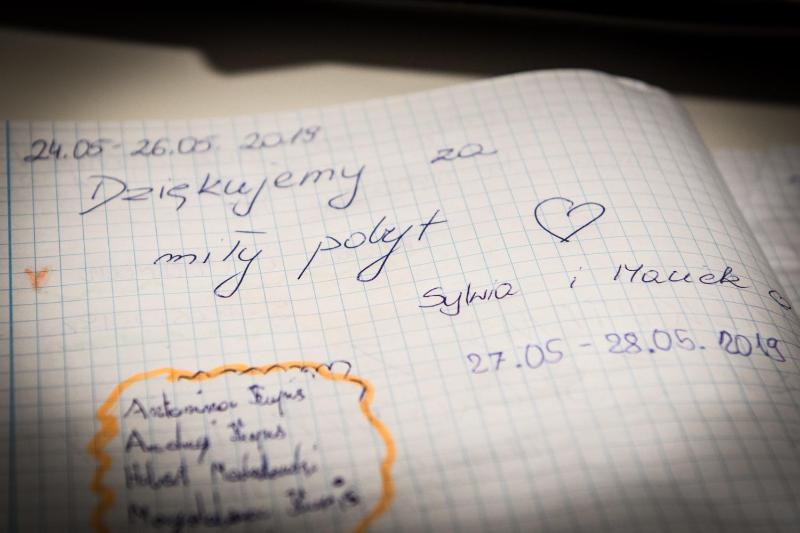 24.05-26.05. 2019
Dziękujemy za
miły pobyt
Sylwia i Maciek
27.05-28.05. 2019
Antonina
Andrzej
Hubert
Magdalena